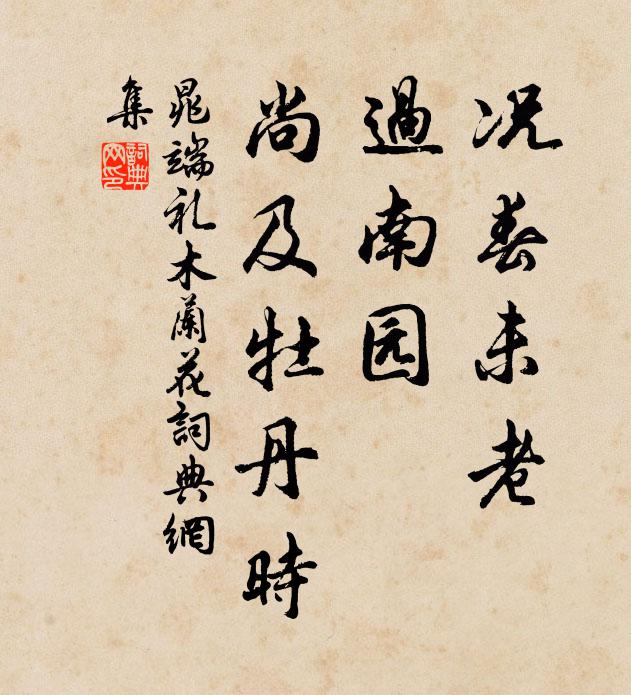 况春未老
過南园
尚及牡丹時
晁端礼木蘭花詞典網
集
詞典網印